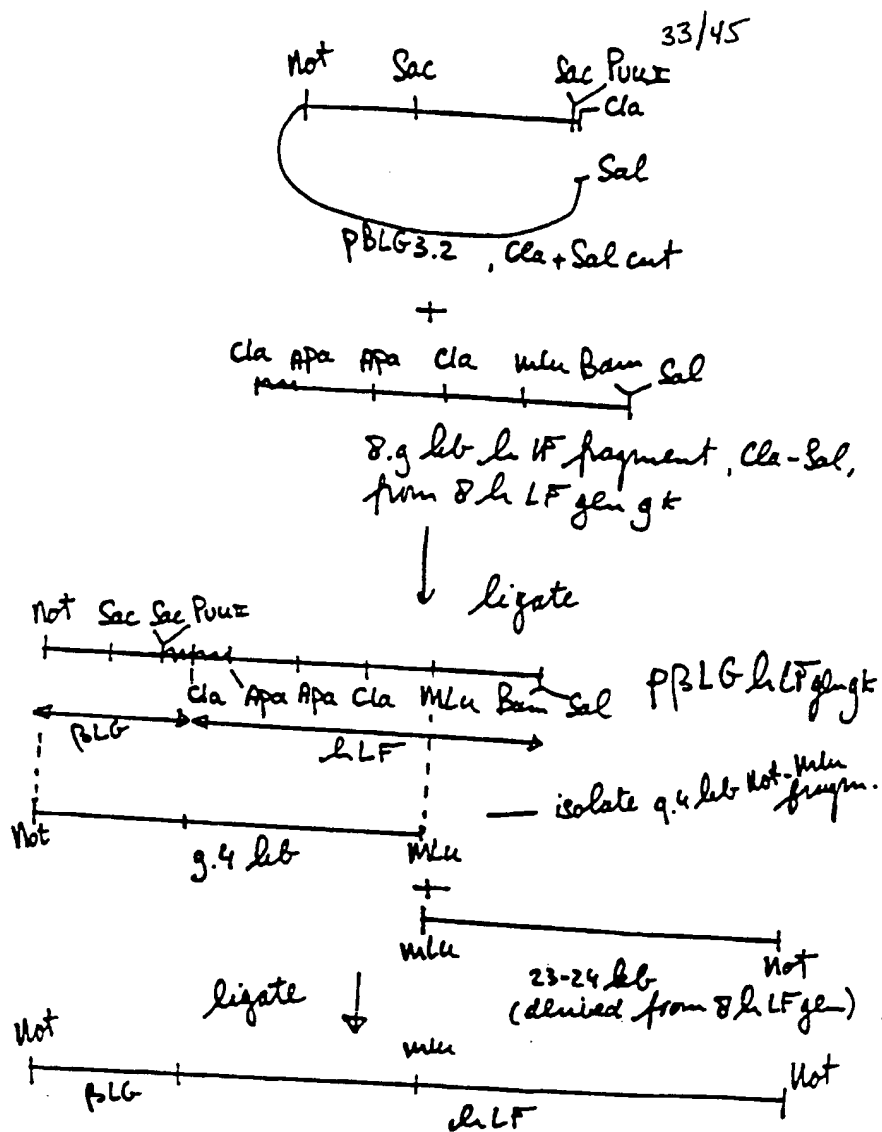 33/45
Not Sac Sac PvuI
Cla
Sal
pBLG3.2, Cla+Sal cut
+
Cla Apa Apa Cla Mlu Bam Sal
8.9 kb hLF fragment, Cla-Sal,
from 8hLFgen9k
ligate
Not Sac Sac PvuI
Cla Apa Apa Cla Mlu Bam Sal pβLGhLFgen9k
βLG
hLF
isolate 9.4 kb Not-Mlu
fragm.
Not 9.4 kb Mlu
+
Mlu Not
23-24 kb
(derived from 8hLFgen)
ligate
Not Mlu Not
βLG hLF